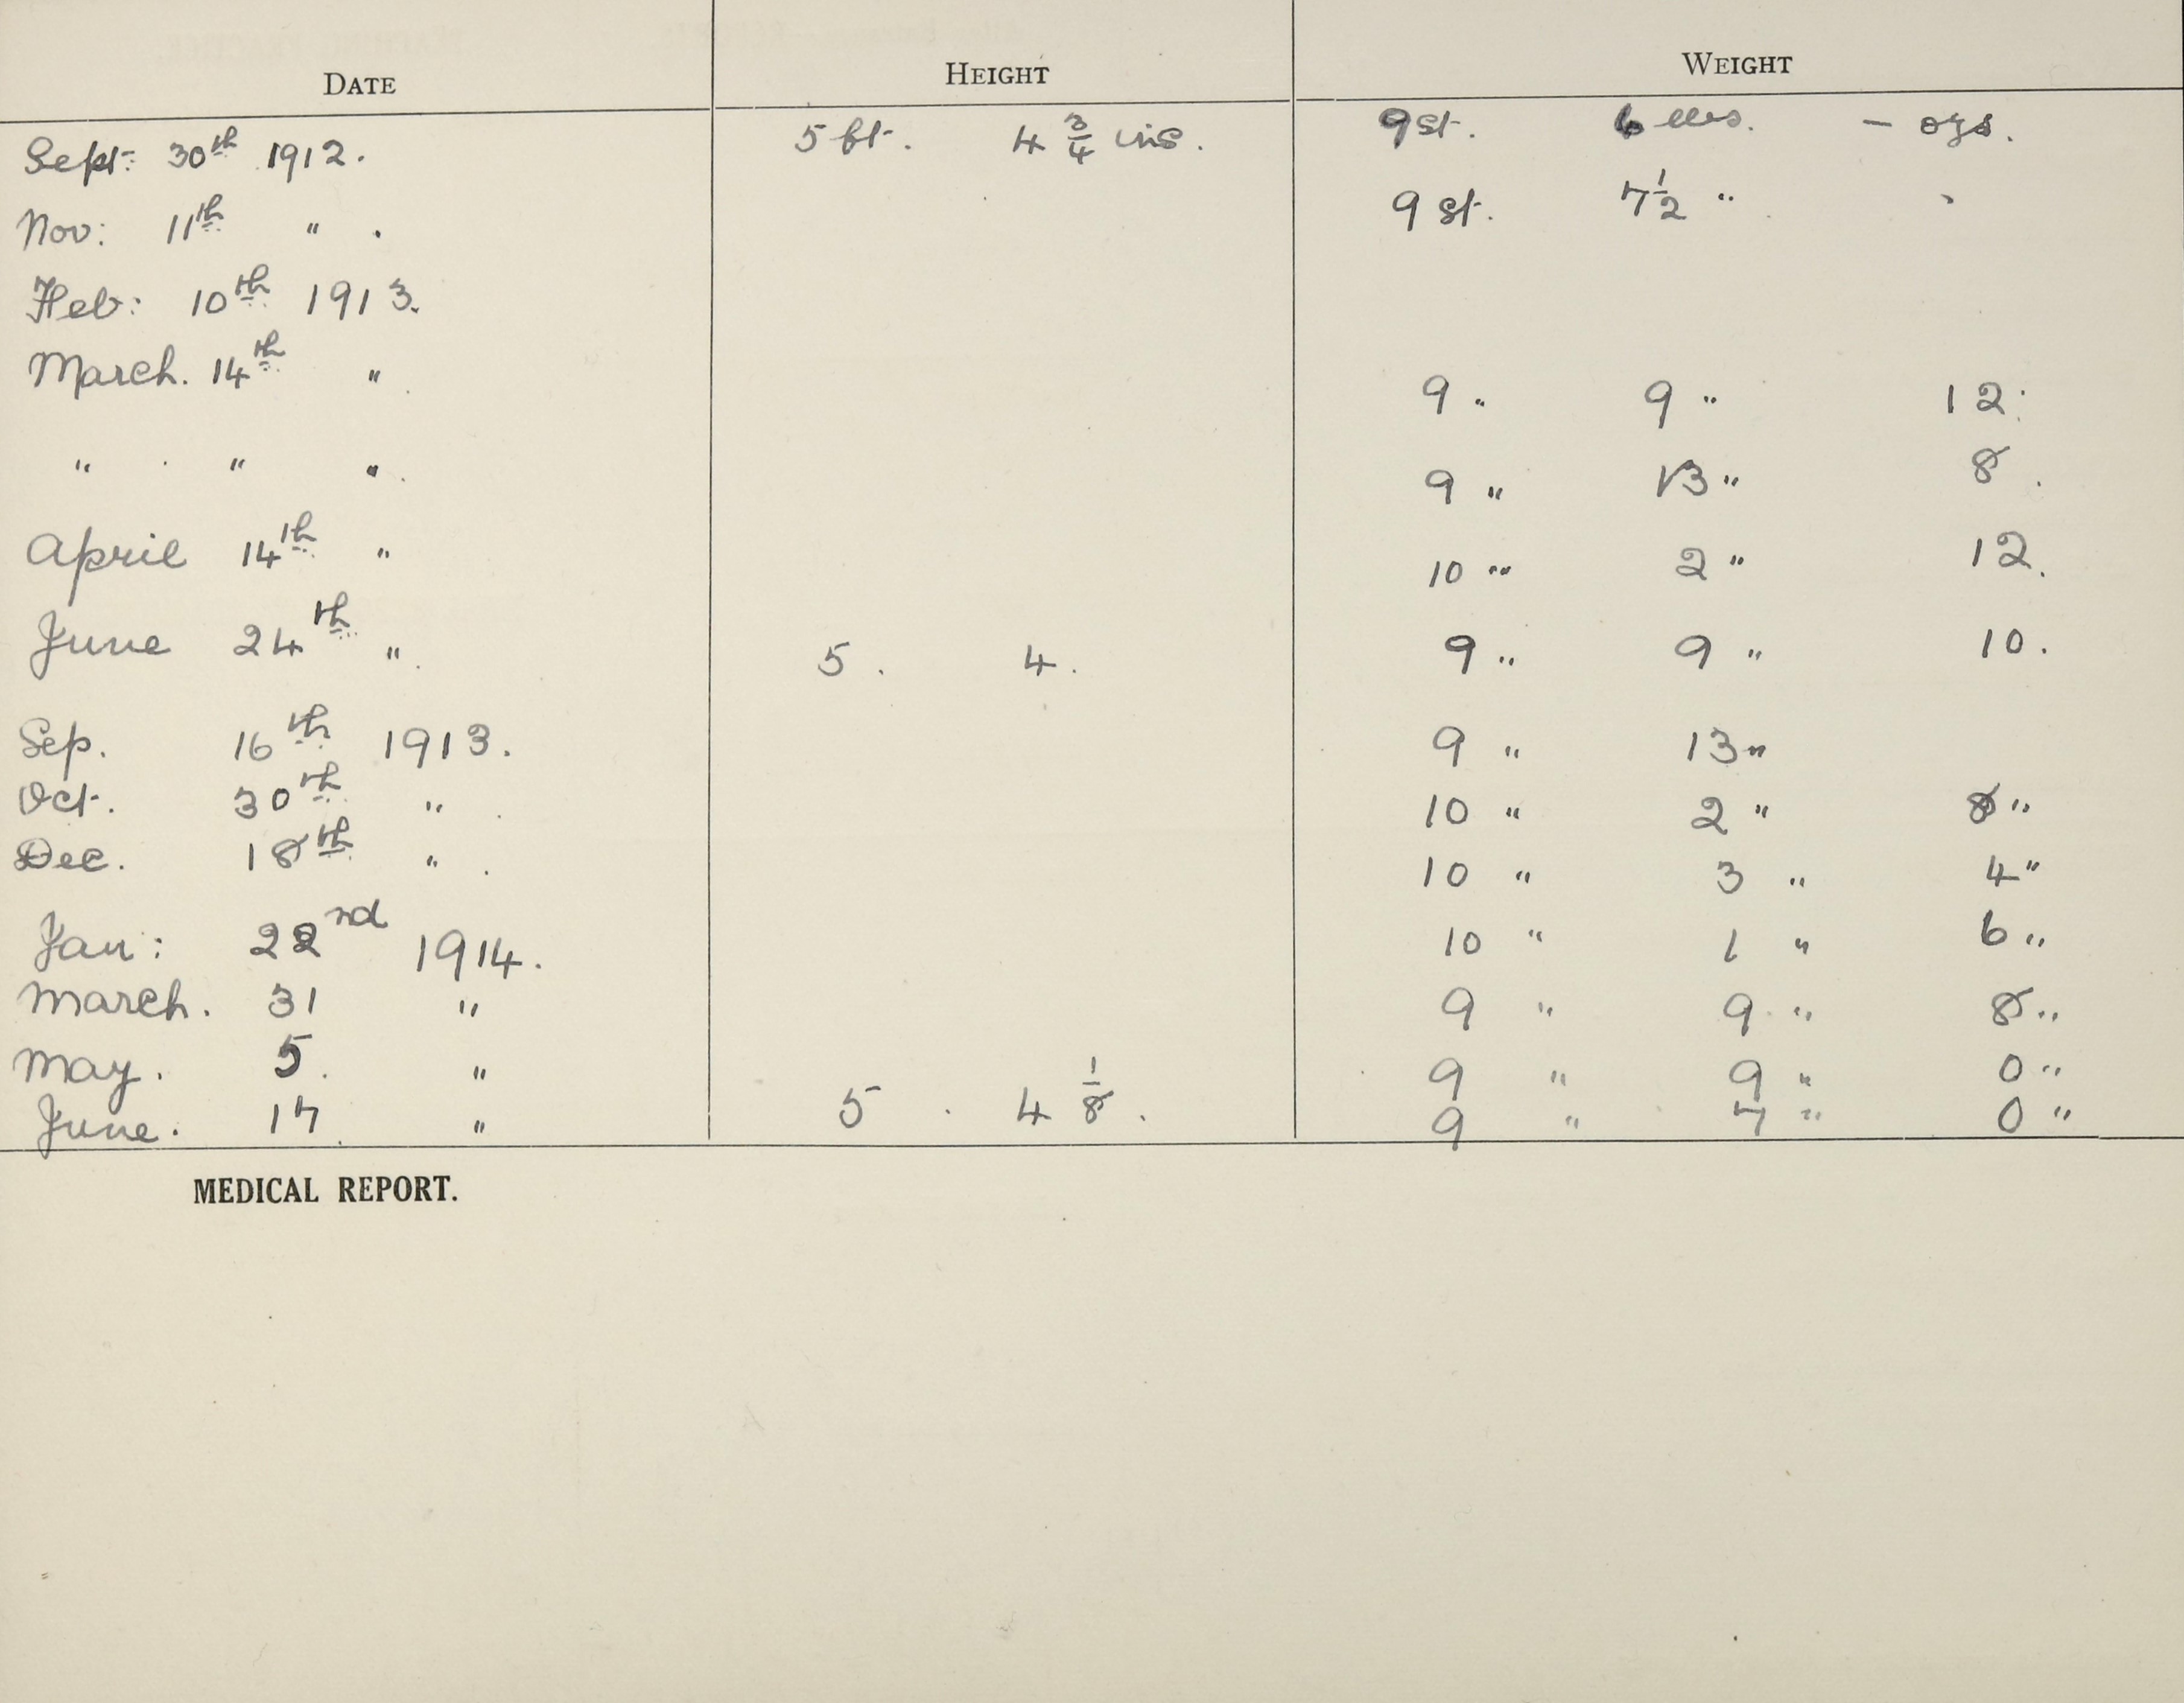 DATE HEIGHT WEIGHT
Sept: 30th 1912. 5 ft. 4 3/4 ins. 9 st. 6 lbs. - ozs.
Nov: 11th " . 9 st. 7 1/2 "
Feb: 10th 1913.
March. 14th " 9 " 9 " 12.
" " " 9 " 13 " 8.
April 14th " 10 " 2 " 12.
June 24th " 5. 4. 9 " 9 " 10.
Sep. 16th 1913. 9 " 13 "
Oct. 30th " 10 " 2 " 8 "
Dec. 18th " 10 " 3 " 4 "
Jan: 22nd 1914. 10 " 1 " 6 "
March. 31 " 9 " 9 " 8 "
May. 5. " 9 " 9 " 0 "
June. 17 " 5. 4 1/8. 9 " 7 " 0 "
MEDICAL REPORT.